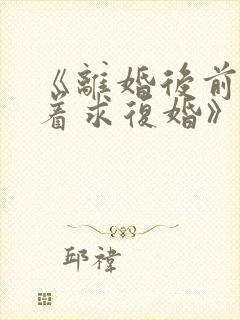 《離婚後前
着求復婚》
邱禕